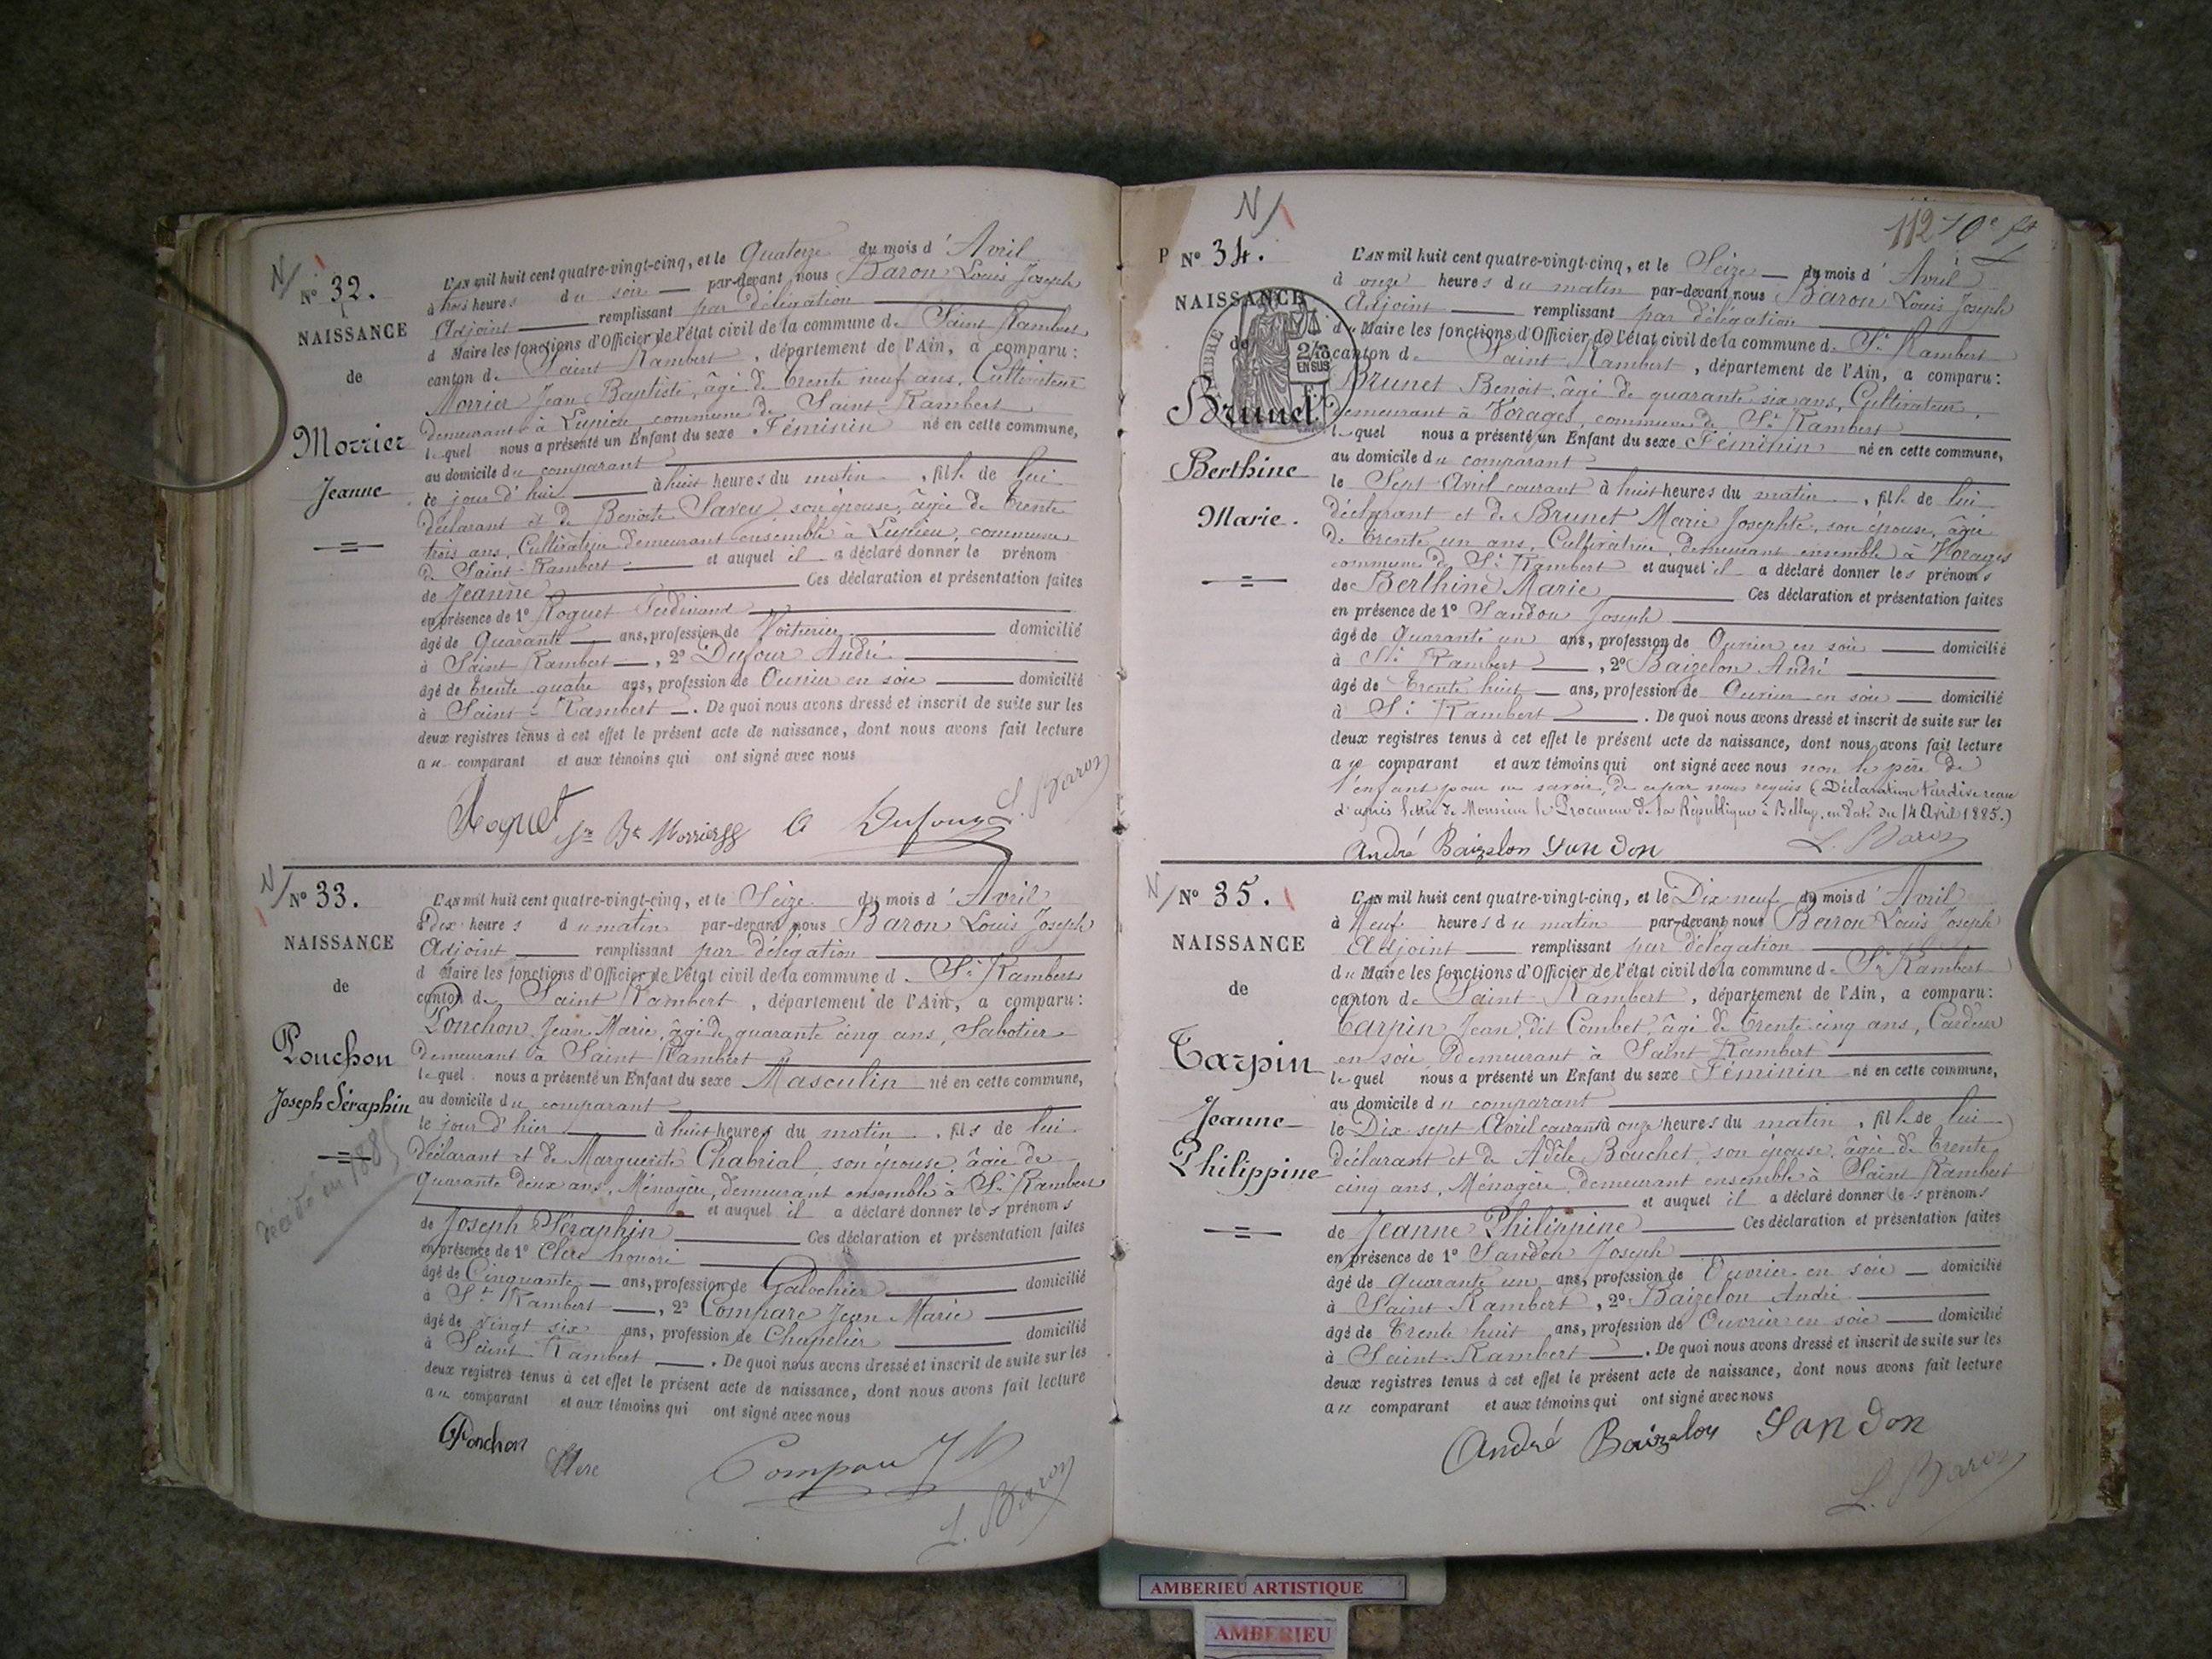 N/
N° 32.
NAISSANCE
de
Morrier
Jeanne
L'AN mil huit cent quatre-vingt-cinq, et le Quatorze du mois d'Avril
à trois heures du soir par-devant nous Baron Louis Joseph
Adjoint remplissant par délégation
d Maire les fonctions d'Officier de l'état civil de la commune de Saint Rambert
canton de Saint Rambert, département de l'Ain, a comparu:
Morrier Jean Baptiste, âgé de trente neuf ans, Cultivateur
demeurant à Lupieu, commune de Saint Rambert
lequel nous a présenté un Enfant du sexe Féminin né en cette commune,
au domicile du comparant
le jour d'hui à huit heures du matin, fille de lui
déclarant et de Benoite Savey, son épouse, âgée de trente
trois ans, Cultivatrice demeurant ensemble à Lupieu, commune
de Saint Rambert et auquel il a déclaré donner le prénom
de Jeanne Ces déclaration et présentation faites
en présence de 1° Roguet Ferdinand
âgé de Quarante ans, profession de Voiturier domicilié
à Saint Rambert, 2° Dufour André
âgé de trente quatre ans, profession de Ouvrier en soie domicilié
à Saint-Rambert. De quoi nous avons dressé et inscrit de suite sur les
deux registres tenus à cet effet le présent acte de naissance, dont nous avons fait lecture
au comparant et aux témoins qui ont signé avec nous
Roguet Jn Bte Morrier A Dufour L. Baron
N/
N° 33.
NAISSANCE
de
Ponchon
Joseph Séraphin
décédé en 1885
L'AN mil huit cent quatre-vingt-cinq, et le Seize du mois d'Avril
à Dix heures du matin par-devant nous Baron Louis Joseph
Adjoint remplissant par délégation
d Maire les fonctions d'Officier de l'état civil de la commune d. St Rambert
canton de Saint Rambert, département de l'Ain, a comparu:
Ponchon Jean Marie, âgé de quarante cinq ans, Sabotier
demeurant à Saint Rambert
lequel nous a présenté un Enfant du sexe Masculin né en cette commune,
au domicile du comparant
le jour d'hier à huit heures du matin, fils de lui
déclarant et de Marguerite Chabrial, son épouse, âgée de
quarante deux ans, Ménagère, demeurant ensemble à St Rambert
et auquel il a déclaré donner les prénoms
de Joseph Séraphin Ces déclaration et présentation faites
en présence de 1° Clerc honoré
âgé de Cinquante ans, profession de Galochier domicilié
à St Rambert, 2° Compare Jean Marie
âgé de vingt six ans, profession de Chapelier domicilié
à Saint Rambert. De quoi nous avons dressé et inscrit de suite sur les
deux registres tenus à cet effet le présent acte de naissance, dont nous avons fait lecture
au comparant et aux témoins qui ont signé avec nous
Ponchon Clerc
L. Baron
112
N/
P N° 34.
NAISSANCE
de
TIMBRE
2/10
EN SUS
Brunet
Berthine
Marie.
L'AN mil huit cent quatre-vingt-cinq, et le Seize du mois d'Avril
à onze heures du matin par-devant nous Baron Louis Joseph
Adjoint remplissant par délégation
du Maire les fonctions d'Officier de l'état civil de la commune d. St Rambert
canton de Saint Rambert, département de l'Ain, a comparu:
Brunet Benoit, âgé de quarante six ans, Cultivateur,
demeurant à Vorages, commune de St Rambert
lequel nous a présenté un Enfant du sexe Féminin né en cette commune,
au domicile du comparant
le Sept Avril courant à huit heures du matin, fille de lui
déclarant et de Brunet Marie Josephte, son épouse, âgée
de trente un ans, Cultivatrice, demeurant ensemble à Vorages
commune de St Rambert et auquel il a déclaré donner les prénoms
de Berthine Marie Ces déclaration et présentation faites
en présence de 1° Sandon Joseph
âgé de quarante un ans, profession de Ouvrier en soie domicilié
à St Rambert, 2° Baizelon André
âgé de trente huit ans, profession de Ouvrier en soie domicilié
à St Rambert. De quoi nous avons dressé et inscrit de suite sur les
deux registres tenus à cet effet le présent acte de naissance, dont nous avons fait lecture
au comparant et aux témoins qui ont signé avec nous non le père de
l'enfant pour ne savoir, de ce par nous requis (Déclaration tardive reçue
d'après lettre de Monsieur le Procureur de la République à Belley, en date du 14 Avril 1885.)
André Baizelon Sandon L. Baron
N/
N° 35.
NAISSANCE
de
Tarpin
Jeanne
Philippine
L'AN mil huit cent quatre-vingt-cinq, et le Dix-neuf du mois d'Avril
à Neuf heures du matin par-devant nous Baron Louis Joseph
Adjoint remplissant par délégation
du Maire les fonctions d'Officier de l'état civil de la commune d. St Rambert
canton de Saint Rambert, département de l'Ain, a comparu:
Tarpin Jean, dit Combet, âgé de trente cinq ans, Cardeur
en soie, demeurant à Saint Rambert
lequel nous a présenté un Enfant du sexe Féminin né en cette commune,
au domicile du comparant
le Dix sept Avril courant à onze heures du matin, fille de lui
déclarant et de Adèle Bouchet, son épouse, âgée de trente
cinq ans, Ménagère, demeurant ensemble à Saint Rambert
et auquel il a déclaré donner les prénoms
de Jeanne Philippine Ces déclaration et présentation faites
en présence de 1° Sandon Joseph
âgé de quarante un ans, profession de Ouvrier en soie domicilié
à Saint Rambert, 2° Baizelon André
âgé de trente huit ans, profession de Ouvrier en soie domicilié
à Saint-Rambert. De quoi nous avons dressé et inscrit de suite sur les
deux registres tenus à cet effet le présent acte de naissance, dont nous avons fait lecture
au comparant et aux témoins qui ont signé avec nous
André Baizelon Sandon
L. Baron
AMBERIEU ARTISTIQUE
AMBERIEU